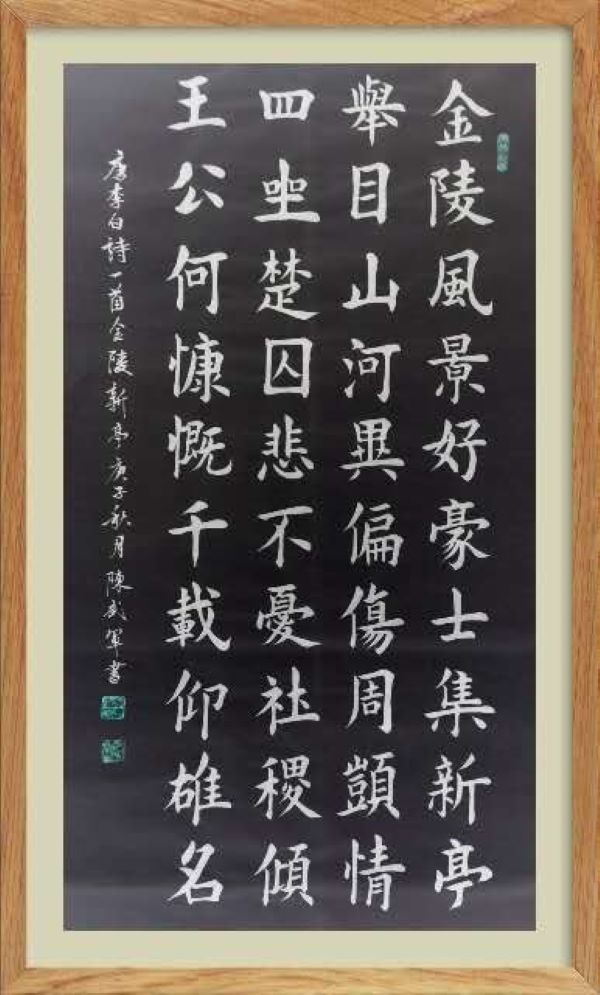 金陵風景好豪士集新亭
舉目山河異偏傷周顗情
四坐楚囚悲不憂社稷傾
王公何慷慨千載仰雄名
唐李白詩一首金陵新亭庚子秋月陳武軍書